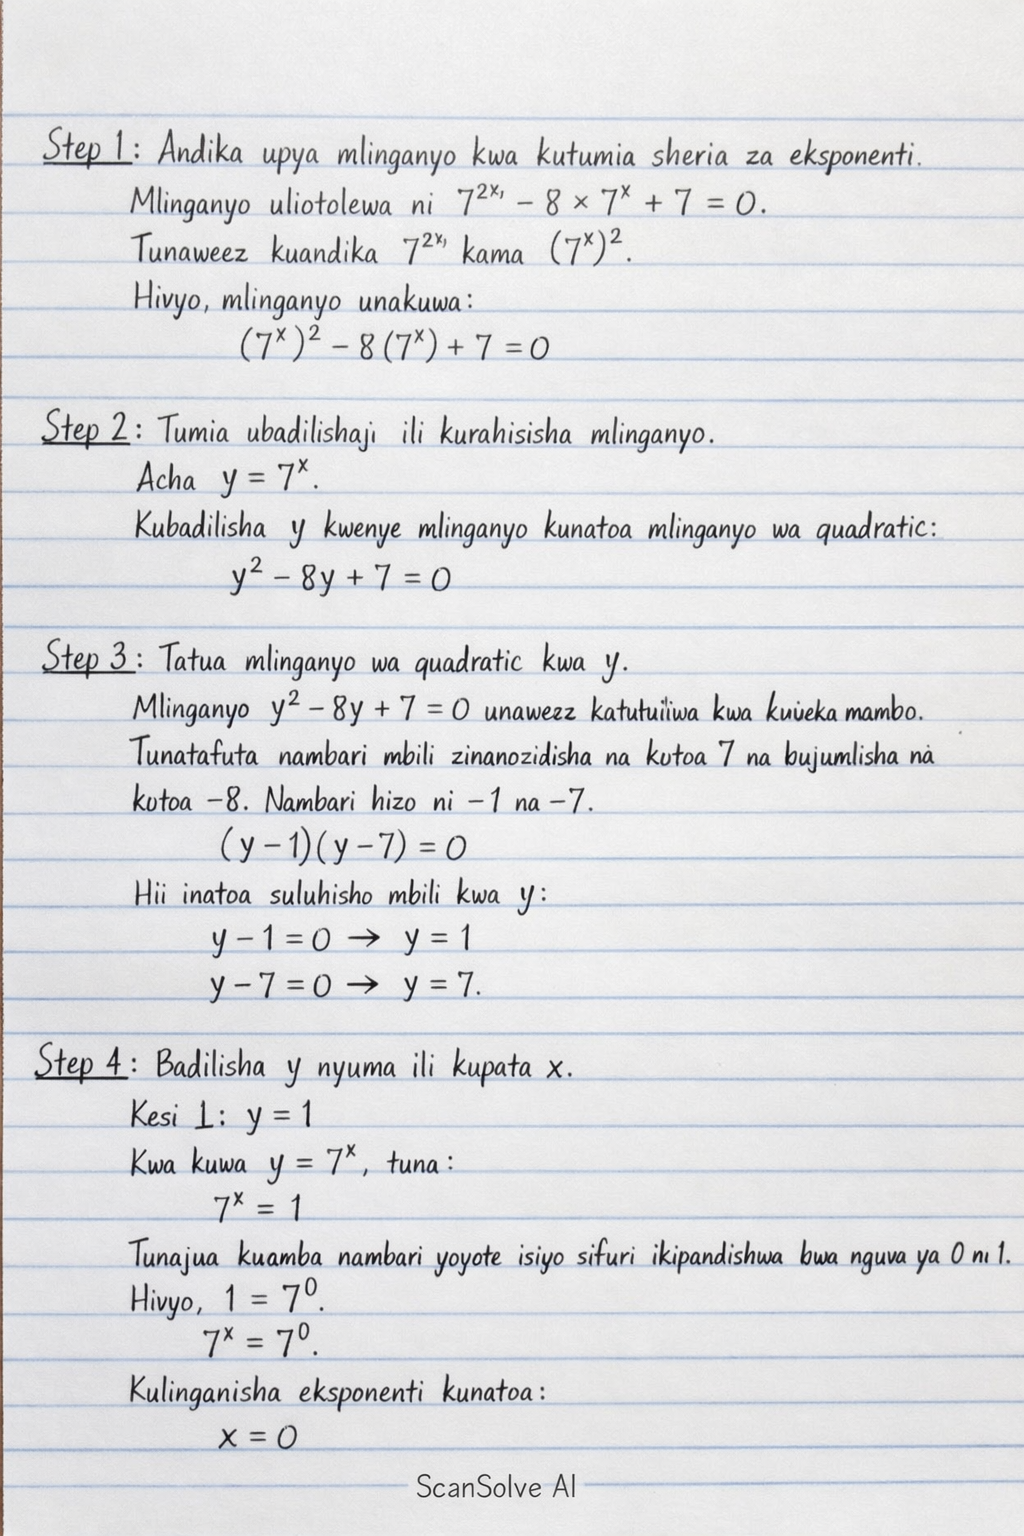 Step 1: Andika upya mlinganyo kwa kutumia sheria za eksponenti.
Mlinganyo uliotolewa ni 7²ˣ' − 8 × 7ˣ + 7 = 0.
Tunaweez kuandika 7²ˣ' kama (7ˣ)².
Hivyo, mlinganyo unakuwa:
(7ˣ)² − 8(7ˣ) + 7 = 0
Step 2: Tumia ubadilishaji ili kurahisisha mlinganyo.
Acha y = 7ˣ.
Kubadilisha y kwenye mlinganyo kunatoa mlinganyo wa quadratic:
y² − 8y + 7 = 0
Step 3: Tatua mlinganyo wa quadratic kwa y.
Mlinganyo y² − 8y + 7 = 0 unawezz kwa mambo.
Tunatafuta nambari mbili zinanozidisha na kutoa 7 na bujumlisha na
kutoa −8. Nambari hizo ni −1 na −7.
(y − 1)(y − 7) = 0
Hii inatoa suluhisho mbili kwa y:
y − 1 = 0 → y = 1
y − 7 = 0 → y = 7.
Step 4: Badilisha y nyuma ili kupata x.
Kesi 1: y = 1
Kwa kuwa y = 7ˣ, tuna:
7ˣ = 1
Tunajua kuamba nambari yoyote isiyo sifuri ikipandishwa bwa nguva ya 0 ni 1.
Hivyo, 1 = 7⁰.
7ˣ = 7⁰.
Kulinganisha eksponenti kunatoa:
x = 0
ScanSolve AI